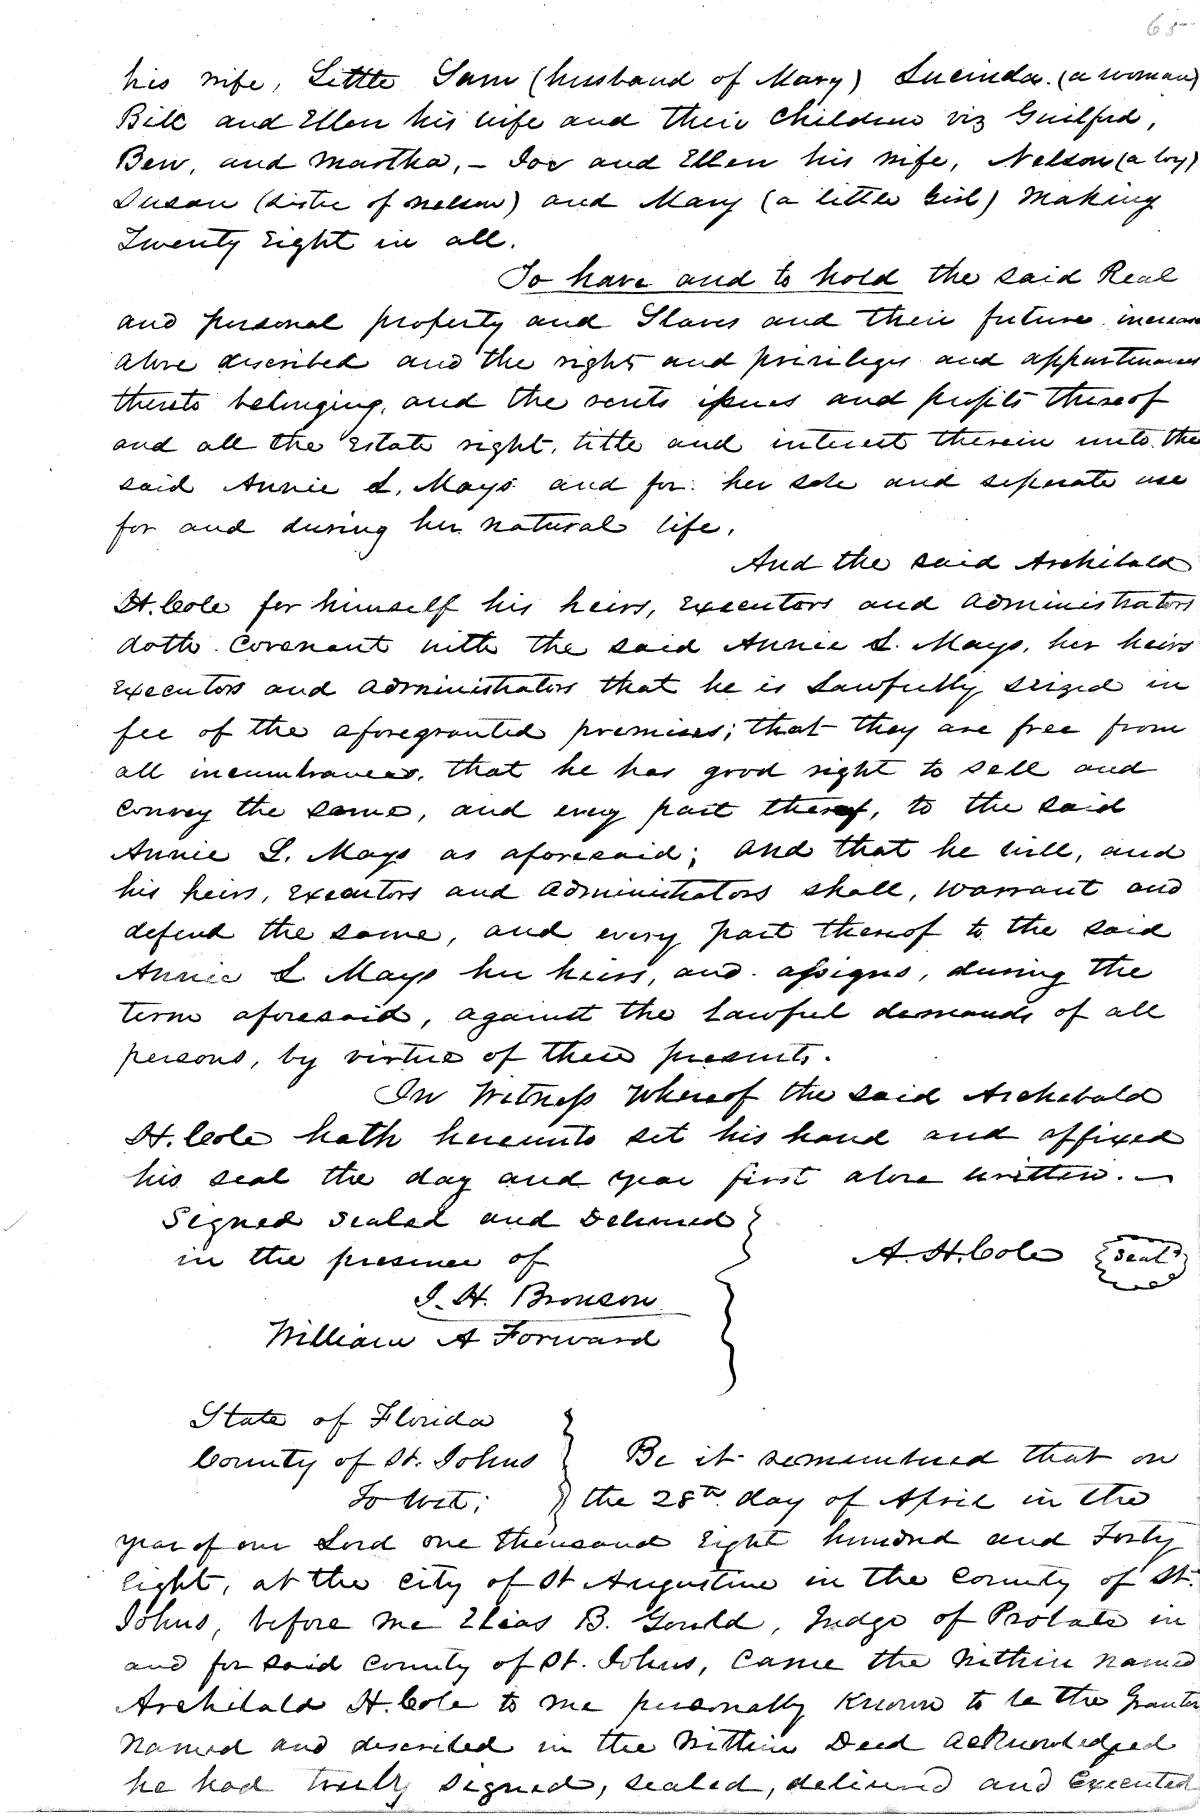 65
his wife, Little Sam (husband of Mary) Lucinda. (a woman)
Bill and Ellen his wife and their Children viz Guilford,
Ben, and Martha, – Joe and Ellen his wife, Nelson (a boy)
Susan (sister of Nelson) and Mary (a little Girl) Making
Twenty Eight in all.
To have and to hold the said Real
and personal property and Slaves and their future increase
above described and the rights and privileges and appurtenances
thereto belonging, and the rents issues and profits thereof
and all the Estate right, title and interest therein unto the
said Annie L. Mays and for her sole and seperate use
for and during her natural life.
And the said Archibald
H. Cole for himself his heirs, Executors and administrators
doth Covenant with the said Annie L. Mays, her heirs
Executors and administrators that he is Lawfully seized in
fee of the aforegranted premises; that they are free from
all incumbrances, that he has good right to sell and
Convey the same, and every part thereof, to the said
Annie L. Mays as aforesaid; and that he will, and
his heirs, Executors and administrators shall, warrant and
defend the same, and every part thereof to the said
Annie L Mays her heirs, and assigns, during the
term aforesaid, against the Lawful demands of all
persons, by virtue of these presents.
In Witness Whereof the said Archibald
H. Cole hath hereunto set his hand and affixed
his seal the day and year first above written. –
Signed sealed and Delivered
in the presence of A. H. Cole seal
I. H. Bronson
William A Forward
State of Florida
County of St. Johns Be it remembered that on
To Wit; the 28th day of April in the
year of our Lord one thousand Eight hundred and Forty
Eight, at the City of St Augustine in the County of St.
Johns, before me Elias B. Gould, Judge of Probate in
and for said County of St. Johns, Came the Within named
Archibald H. Cole to me personally Known to be the Grantor
Named and described in the Within Deed acknowledged
he had truly signed, sealed, delivered and Executed